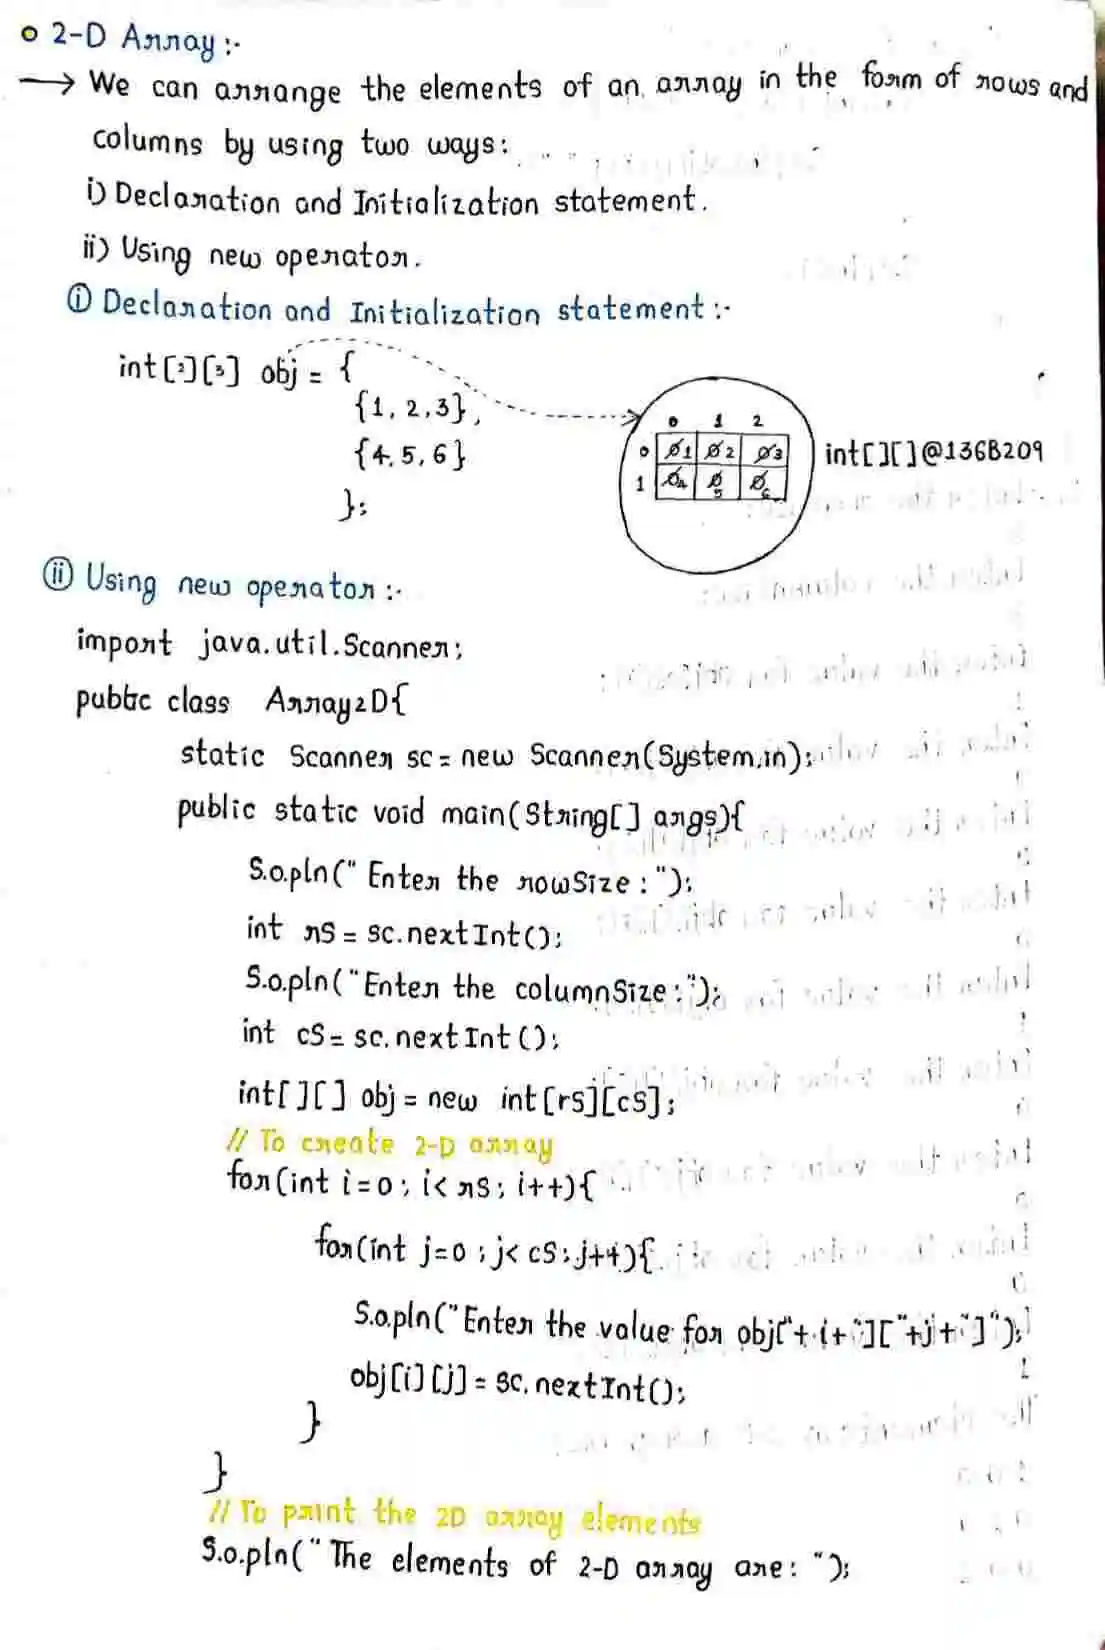 2-D Array :-
→ We can arrange the elements of an array in the form of rows and
columns by using two ways:
i) Declaration and Initialization statement.
ii) Using new operator.
(i) Declaration and Initialization statement :-
int[2][3] obj = {
{1, 2, 3},
{4, 5, 6}
};
0 1 2
0 0 1 0 2 0 3
1 0 4 0 5 0 6
int[][]@136B209
(ii) Using new operator :-
import java.util.Scanner;
public class Array2D{
static Scanner sc = new Scanner(System.in);
public static void main(String[] args){
S.o.pln(" Enter the rowSize : ");
int rS = sc.nextInt();
S.o.pln("Enter the columnSize : ");
int cS = sc.nextInt();
int[][] obj = new int[rS][cS];
// To create 2-D array
for(int i=0; i< rS; i++){
for(int j=0; j< cS; j++){
S.o.pln("Enter the value for obj["+i+"]["+j+"]");
obj[i][j] = sc.nextInt();
}
}
// To print the 2D array elements
S.o.pln("The elements of 2-D array are: ");